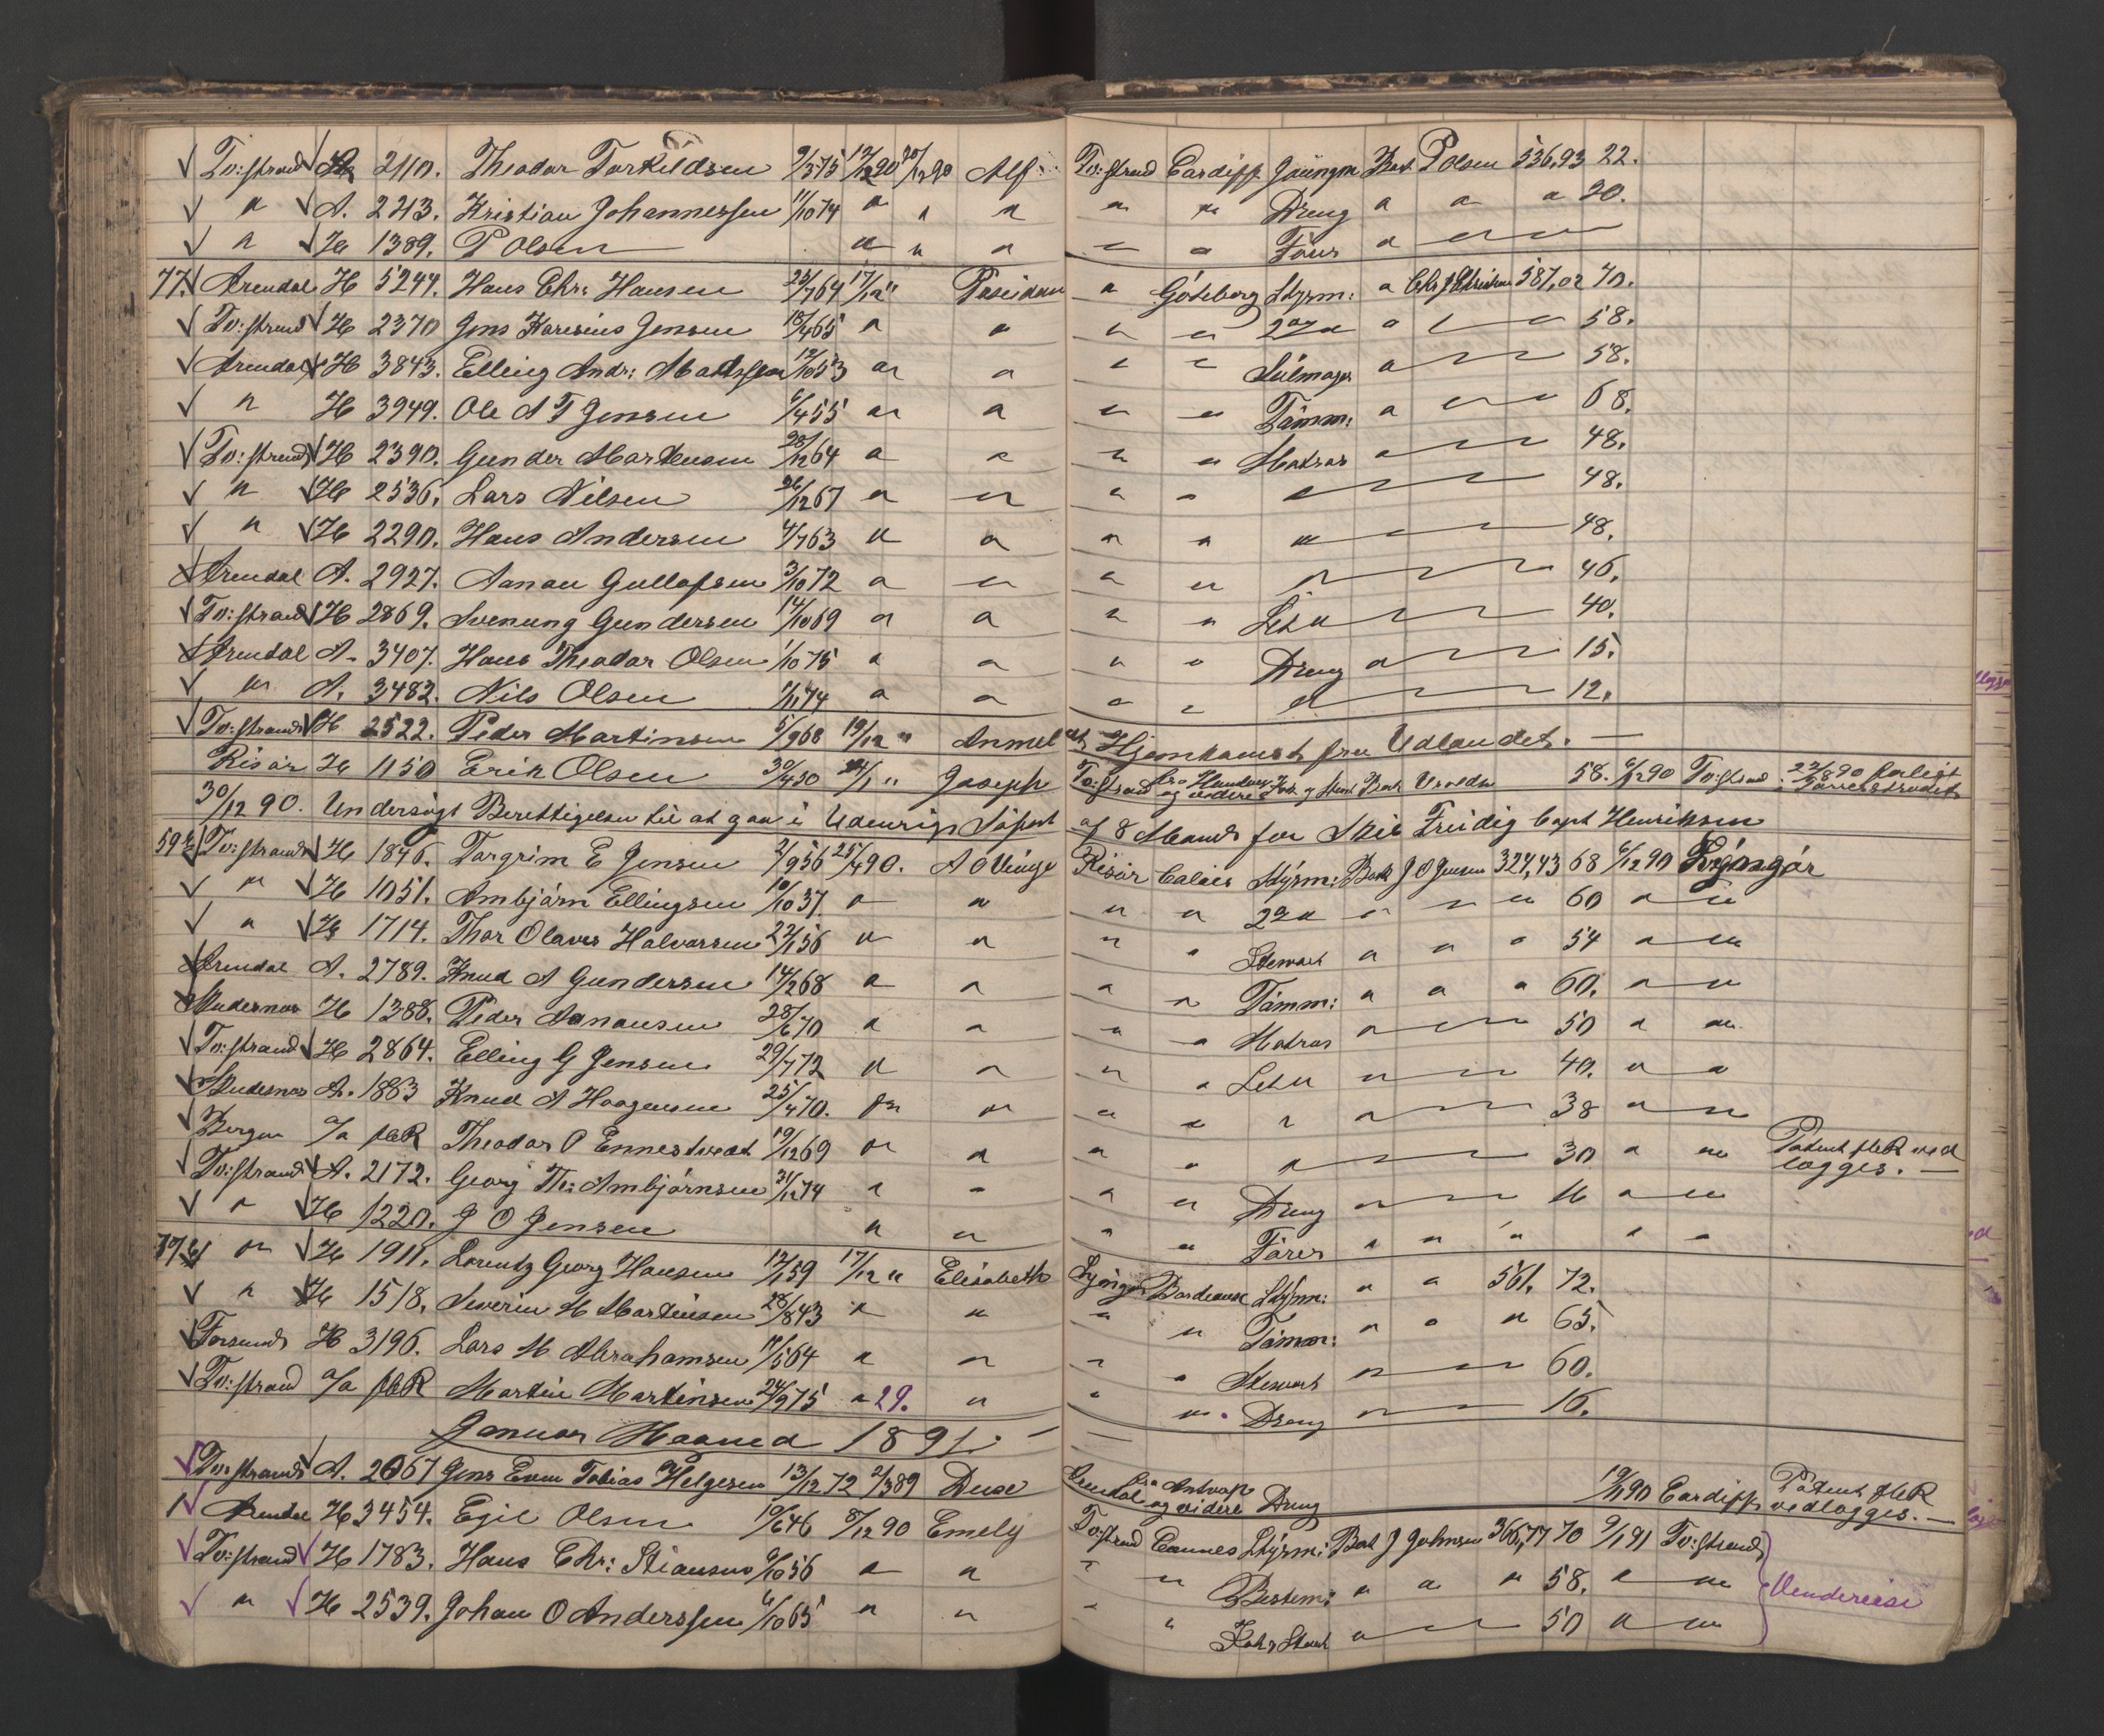 Tv:strand H 2110. Theodor Torkildsen 9/5 75 12/12 90 20/12 90 Alf Tv:strand Cardiff Jüngm Bark P Olsen 536,93 22.
" A. 2213. Kristian Johannessen 11/10 74 " " " " " Dreng " " " 20.
" H 1389. P Olsen " " " " " Fører "
77. Arendal H 5244. Hans Chr: Hansen 25/7 64 17/12 " Poseidon " Göteborg Styrm: " Chr J Christiansen 587,02 70.
Tv:strand H 2370 Jens Karenius Jensen 18/4 65 " " " " 2den " 58.
Arendal H 3843. Elling Andr: Madssen 12/10 53 " " " " Seilmager " 58.
" H 3949. Ole A T Jensen 6/4 55 " " " " Tømm: " 68.
Tv:strand H 2390. Gunder Martinsen 28/12 64 " " " " Matros 48.
" H 2536. Lars Nilsen 26/12 67 " " " " " 48.
" H 2290. Hans Andersen 4/7 63 " " " " " 48.
Arendal A. 2927. Aanon Gullofsen 3/10 72 " " " " " 46.
Tv:strand H 2869. Svenung Gundersen 14/10 69 " " " " Letm 40.
Arendal A. 3407. Hans Theodor Olsen 1/10 75 " " " " Dreng " 15.
" A. 3482. Nils Olsen 11/1 74 " " " " " 12.
Tv:strand H 2522. Peder Martinsen 5/9 68 19/12 " Anmeldt Hjemkomst fra Udlandet. —
Risør H 1150 Erik Olsen 30/4 30 " Joseph Tv:strand og videre Kok & Stuert Bark 58. 6/12 90 Tv:strand forlist
30/12 90. Undersøgt Berettigelsen til at gaa i Udenrigs Søfart af 8 Mand for Skib Freidig Capt Henriksen
59 Tv:strand H 1846. Torgrim E Jensen 2/9 56 25/4 90. A O Vinje Risør Calais Styrm: Bark J O Jensen 324,43 68 6/12 90 Lyngør
" H 1051. Ambjørn Ellingsen 10/10 37. " " " " 2den " " " 60 " "
" H 1714. Thor Olaves Halvorsen 22/1 56 " " " " Stewart " " " 54 " "
Arendal A. 2789. Knud A Gundersen 14/2 68 " " " " Tømm: " " " 60. " "
Skudesnes H 1388. Peder Aanonsen 28/6 70 " " " " Matros " 50 " "
Tv:strand H 2864. Elling G Jensen 29/7 72 " " " " Letm " 40. " "
Skudesnes A. 1863 Knud A Haagensen 25/4 70. " " " " " " 38 " "
Bergen a/a fleR Theodor O Ennestvedt 19/12 69 " " " " " 30 " " Patent fleR vedlægges. —
Tv:strand A. 2172. Georg Th: Ambjørnsen 31/12 74 " " " " Dreng 16 " "
" H 1220. J O Jensen " " " " Fører " " " " "
" H 1911. Lorentz Georg Hansen 12/1 59 17/12 " Elisabeth Lyngør Bordeaux Styrm: " " 561. 72.
" H 1518. Severin M Martinsen 28/8 43 " " " " Tømm: " " " 65.
Farsund H 3196. Lars M Abrahamsen 11/5 64 " " " " Stewart 60.
Tv:strand a/a fleR Martin Martinsen 24/9 75 " 29. " " " Dreng 16.
Januar Maaned 1891. —
Tv:strand A. 2067 Jens Even Tobias Helgesen 13/12 72 2/3 89 Duse Arendal Antwrp og videre Dreng 19/1 90 Cardiff Patent fleR vedlægges. —
1 Arendal H 3454. Egil Olsen 10/6 46 8/12 90 Emely Tv:strand Cannes Styrm: Bark J Johnsen 366,77 70 9/1 91 Tv:strand
Tv:strand H 1783. Hans Chr: Stiansen 9/10 56 " " " " Bestm: " " " 58. " " Vendereise
" H 2539. Johan O Anderssen 6/10 65 " " " " Kok & Stuert " 50 " "